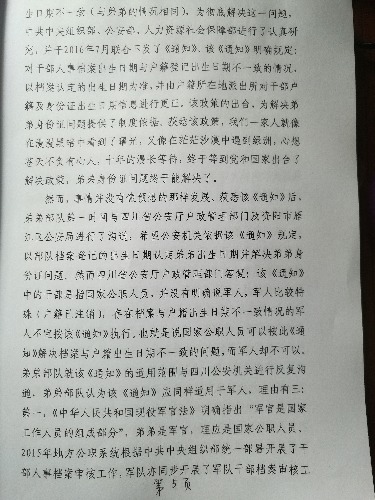 生日期不一致（与弟弟的情况相同），为彻底解决这一问题，
中共中央组织部、公安部、人力资源社会保障部进行了认真研
究，并于2016年7月联合下发了《通知》，该《通知》明确规定：
对干部人事档案出生日期与户籍登记出生日期不一致的情况，
以档案认定的出生日期为准，并由户籍所在地派出所对干部户
籍及身份证出生日期信息进行更正。该政策的出台，为解决弟
弟身份证问题提供了制度依据。获悉该政策，我们一家人就像
在漫漫黑暗中看到了曙光，又像在茫茫沙漠中遇到绿洲，心想
苍天不负有心人，十年的漫长等待，终于等到党和国家出台了
解决政策，弟弟身份证问题终于能解决了。
然而，事情并没有我预想的那样发展。获悉该《通知》后，
弟弟部队第一时间与四川省公安厅户政管理部门及德阳市旌
阳区公安局进行了沟通，希望公安机关依据该《通知》规定，
以部队档案登记的出生日期认定弟弟出生日期并解决弟弟身
份证问题。然而四川省公安厅户政管理部门答复：该《通知》
中的干部是指国家公职人员，并没有明确说军人，军人比较特
殊（户籍已注销），存在档案与户籍出生日期不一致情况的军
人不宜按该《通知》执行。也就是说国家公职人员可以按此《通
知》解决档案与户籍出生日期不一致的问题，而军人却不可以。
弟弟部队就该《通知》的适用范围与四川省公安机关进行反复沟
通，弟弟部队认为该《通知》应同样适用于军人，理由有三：
第一，《中华人民共和国现役军官法》明确指出“军官是国家
工作人员的组成部分”，弟弟是军官，理应是国家公职人员，
2015年地方公职系统根据中共中央组织部统一部署开展了干
部人事档案审核工作，军队亦同步开展了军队干部档案审核工
第5页